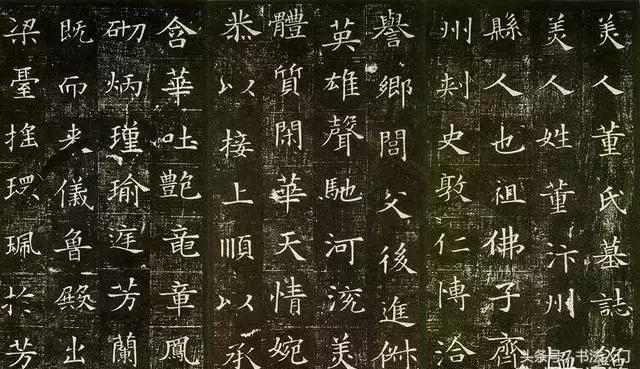 美人董氏墓誌銘
美人姓董汴州恤
縣人也祖佛子齊
州刾史敦仁博洽
譽鄉閭父後進俶
英雄聲馳河渷美
體質閑華天情婉
恭以接上順以承
含華吐艷竜章鳳
砌炳瑾瑜庭芳蘭
既而来儀魯殿出
梁臺搖環珮於芳
头条号 / 书法入门